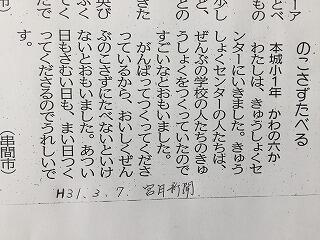 ーア
とべ
少し
きた
央び
市)
のこさずたべる
本城小1年 かわの六か
わたしは、きゅうしょくセ
ンターにいきました。きゅう
しょくセンターの人たちは、
ぜんぶの学校の人たちのきゅ
うしょくをつくっていたので
すごいなとおもいました。
がんばってつくってくださ
っているから、おいしくぜん
ぶのこさずにたべないといけ
ないとおもいました。あつい
日もさむい日も、まい日つく
ってくださるのでうれしいで
す。
(串間市)
H31.3.7. 宮日新聞